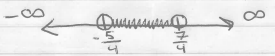 -∞ ∞
-5/4 7/4